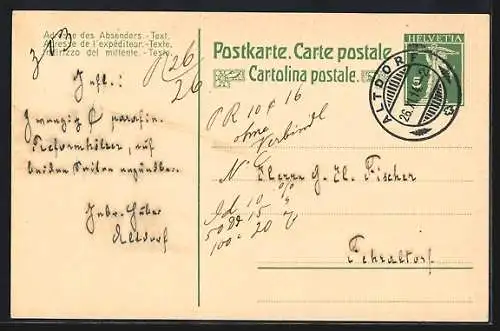 Adresse des Absenders.-Text.
Adresse de l'expéditeur.-Texte.
Indirizzo del mittente.-Testo.
Postkarte. Carte postale.
Cartolina postale.
HELVETIA
5
ALTDORF
26
26
Zwanzig ₵ paraffin.
Reformhölzer, auf
beiden Seiten
Gebr. Huber
Altdorf
PR 10 ₵ 16
ohne
Verbindl
Herrn G. Hl. Fischer
Fehraltorf
10 %
50 15
100 = 20